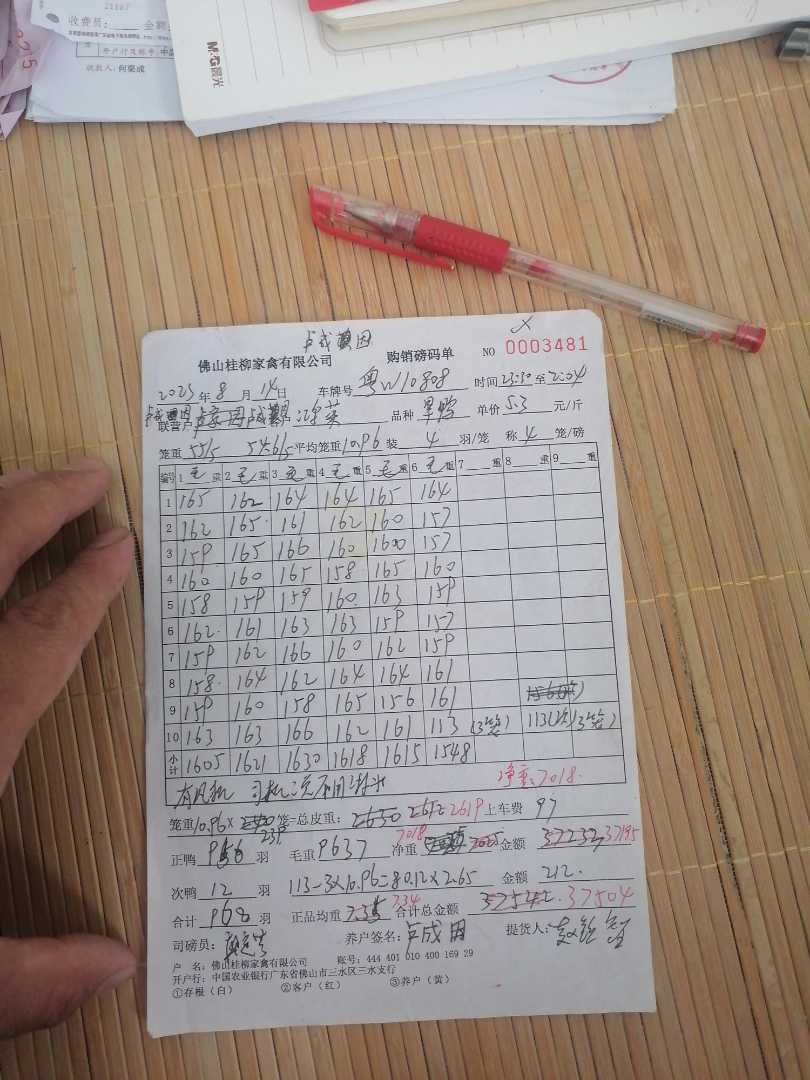 21587
收费员: 金额
开户行及账号: 中
收款人: 何荣成
M&G 晨光
佛山桂柳家禽有限公司 购销磅码单 NO 0003481
2025 年 8 月 14 日 车牌号 粤W10808 时间 23:30 至 2:04
联营户 品种 旱鸭 单价 5.3 元/斤
笼重 平均笼重 10.96 装 4 羽/笼 称 4 笼/磅
编号 1 毛 重 2 毛 重 3 毛 重 4 毛 重 5 毛 重 6 毛 重 7 重 8 重 9 重
1 165 162 164 164 165 164
2 162 165 161 162 160 157
3 159 165 166 160 160 157
4 160 160 165 158 165 160
5 158 159 159 160 163 159
6 162 161 163 163 159 157
7 159 162 166 160 162 159
8 158 164 162 164 164 161
9 159 160 158 165 156 161
10 163 163 166 162 161 113 (3笼) 113(次)(3笼)
小计 1605 1621 1630 1618 1615 1548
净重: 7018.
笼重 10.96× 239 笼=总皮重: 2619 上车费 97
正鸭 956 羽 毛重 9637 净重 7018 金额 37195
次鸭 12 羽 113-3×10.96=80.12×2.65 金额 212.
合计 968 羽 正品均重 7.34 合计总金额 37504
司磅员: 养户签名: 提货人:
户 名: 佛山桂柳家禽有限公司 账号: 444 401 010 400 169 29
开户行: 中国农业银行广东省佛山市三水区三水支行
①存根(白) ②客户(红) ③养户(黄)